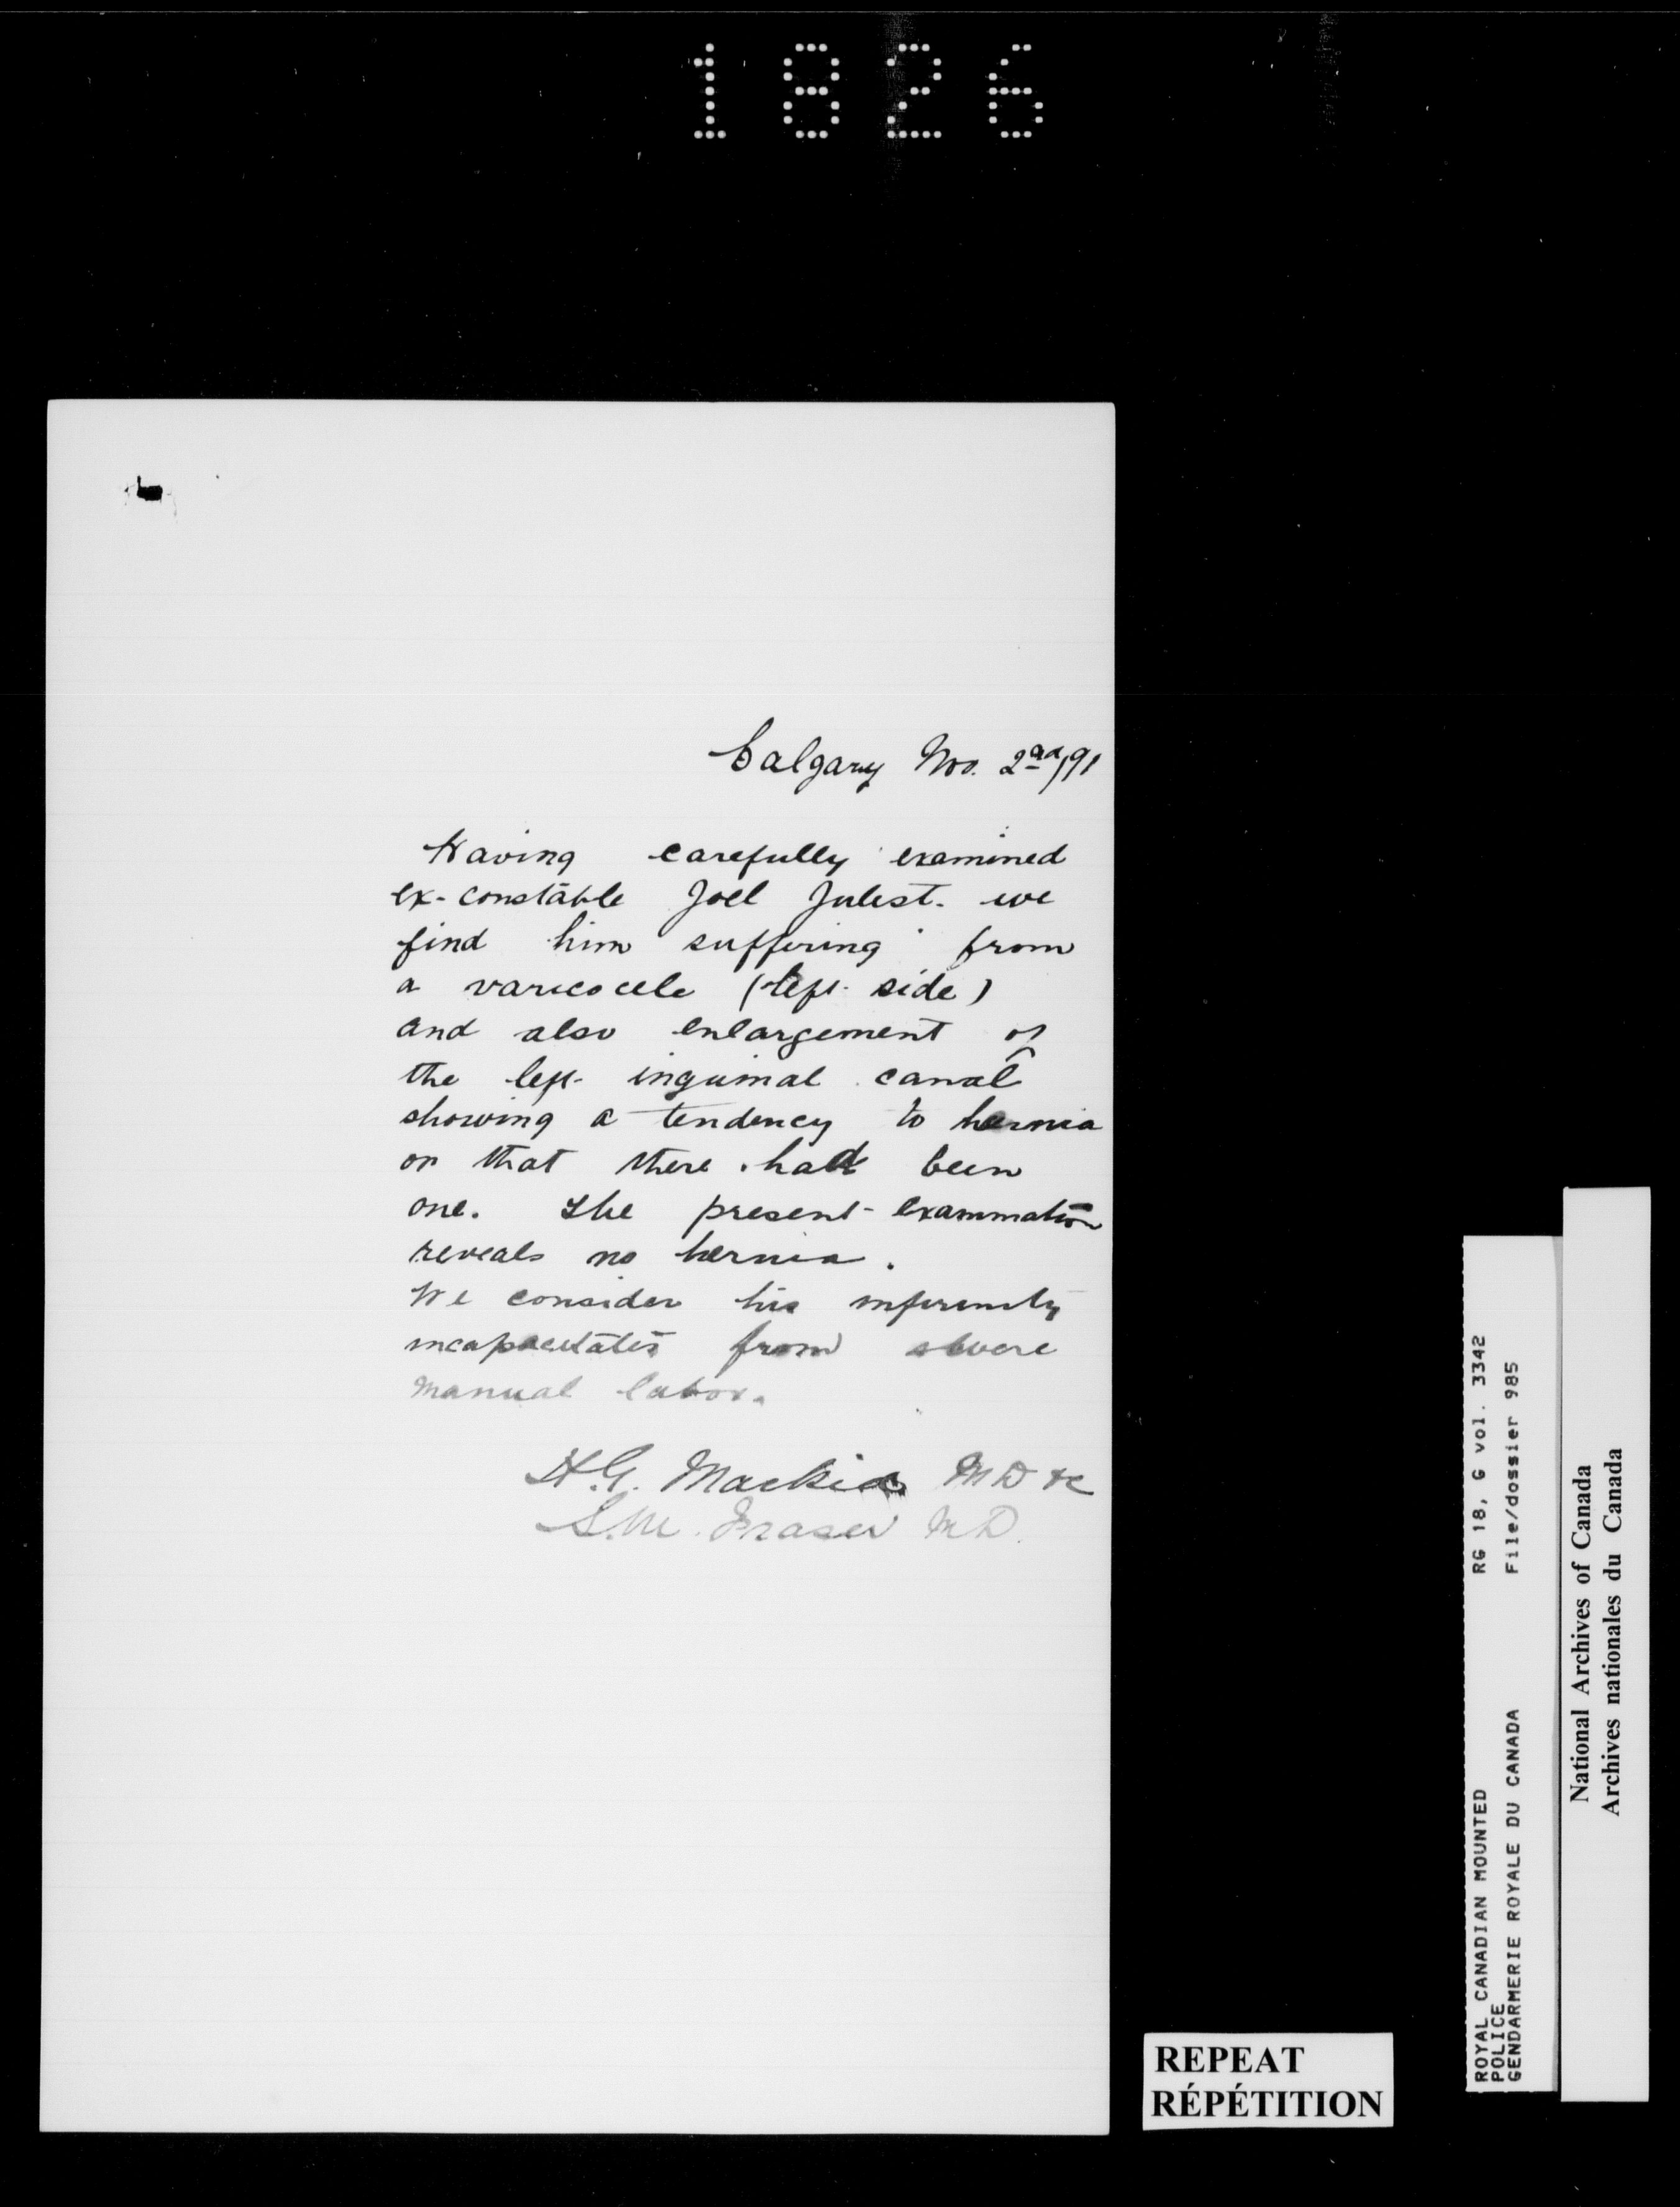 1826
Calgary Nov. 2nd/91
Having carefully examined
ex-constable Joel Julest. we
find him suffering from
a varicocele (left side)
and also enlargement of
the left inguinal canal
showing a tendency to hernia
or that there had been
one. The present examination
reveals no hernia.
We consider his infirmity
incapacitates from severe
manual labor.
H.G. Mackid MD &c
S.M. Fraser MD.
REPEAT
RÉPÉTITION
ROYAL CANADIAN MOUNTED RG 18, G vol. 3342
POLICE
GENDARMERIE ROYALE DU CANADA File/dossier 985
National Archives of Canada
Archives nationales du Canada